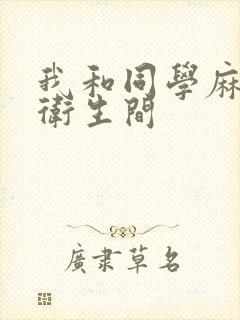 我和同學麻
衛生間
廣肅草名